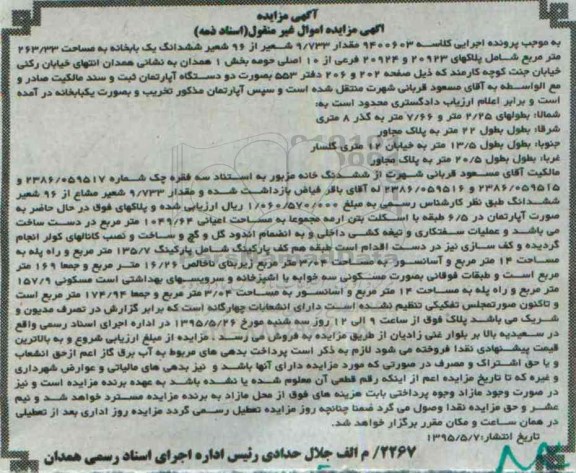 آگهی مزایده
آگهی مزایده اموال غیر منقول(اسناد ذمه)
به موجب پرونده اجرایی کلاسه ۹۴۰۰۶۰۳ مقدار ۹/۷۳۳ شعیر از ۹۶ شعیر ششدانگ یک بابخانه به مساحت ۲۶۳/۳۳
متر مربع شامل پلاکهای ۲۰۹۲۳ و ۲۰۹۲۴ فرعی از ۱۰ اصلی حومه بخش ۱ همدان به نشانی همدان انتهای خیابان رکنی
خیابان جنت کوچه کارمند که ذیل صفحه ۲۰۲ و ۲۰۶ دفتر ۵۵۳ بصورت دو دستگاه آپارتمان ثبت و سند مالکیت صادر و
مع الواسطه به آقای مسعود قربانی شهرت منتقل شده است و سپس آپارتمان مذکور تخریب و بصورت یکبابخانه در آمده
است و برابر اعلام ارزیاب دادگستری محدود است به:
شمالا: بطولهای ۲/۲۵ متر و ۷/۶۶ متر به گذر ۸ متری
شرقا: بطول بطول ۲۲ متر به پلاک مجاور
جنوبا: بطول بطول ۱۳/۵ متر به خیابان ۱۲ متری گلسار
غربا: بطول بطول ۲۰/۵ متر به پلاک مجاور
مالکیت آقای مسعود قربانی شهرت از ششدنگ خانه مزبور به استناد سه فقره چک شماره ۲۳۸۶/۰۵۹۵۱۷ و
۲۳۸۶/۰۵۹۵۱۵ و ۲۳۸۶/۰۵۹۵۱۶ له آقای باقر فیاض بازداشت شده و مقدار ۹/۷۳۳ شعیر مشاع از ۹۶ شعیر
ششدانگ طبق نظر کارشناس رسمی به مبلغ ۱/۰۶۰/۵۷۰/۰۰۰ ریال ارزیابی شده و پلاکهای فوق در حال حاضر به
صورت آپارتمان در ۶/۵ طبقه با اسکلت بتن ارمه مجموعا به مساحت اعیانی ۱۰۴۹/۶۴ متر مربع در دست ساخت
می باشد و عملیات سفتکاری و تیغه کشی داخلی و به انضمام اندود گل و گچ و ساخت و نصب کانالهای کولر انجام
گردیده و کف سازی نیز در دست اقدام است طبقه هم کف پارکینگ شامل پارکینگ ۱۳۵/۷ متر مربع و راه پله به
مساحت ۱۴ متر مربع و آسانسور متر مربع زیربنای ناخالص ۱۶/۲۶ متر مربع و جمعا ۱۶۹ متر
مربع است و طبقات فوقانی بصورت مسکونی سه خوابه با اشپزخانه و سرویسهای بهداشتی است مسکونی ۱۵۷/۹
متر مربع و راه پله به مساحت ۱۴ متر مربع و آسانسور به مساحت ۳/۰۴ متر مربع و جمعا ۱۷۴/۹۴ متر مربع است
و تاکنون صورتمجلس تفکیکی تنظیم نشده است دارای انشعابات چهارگانه است که برابر گزارش در تصرف مدیون و
شریک می باشد پلاک فوق از ساعت ۹ الی ۱۲ روز سه شنبه مورخ ۱۳۹۵/۵/۲۶ در اداره اجرای اسناد رسمی واقع
در سعیدیه بالا بر بلوار غنی زادیان از طریق مزایده به فروش می رسد. مزایده از مبلغ ارزیابی شروع و به بالاترین
قیمت پیشنهادی نقدا فروخته می شود لازم به ذکر است پرداخت بدهی های مربوط به آب برق گاز اعم ازحق انشعاب
و یا حق اشتراک و مصرف در صورتی که مورد مزایده دارای آنها باشد و نیز بدهی های مالیاتی و عوارض شهرداری
و غیره که تا تاریخ مزایده اعم از اینکه رقم قطعی آن معلوم شده یا نشده باشد به عهده برنده مزایده است و نیز
در صورت وجود مازاد وجوه پرداختی بابت هزینه های فوق از محل مازاد به برنده مزایده مسترد خواهد شد و نیم
عشر و حق مزایده نقدا وصول می گرد ضمنا چنانچه روز مزایده تعطیل رسمی گردد مزایده روز اداری بعد از تعطیلی
در همان ساعت و مکان مقرر برگزار خواهد شد.
تاریخ انتشار:۱۳۹۵/۵/۷
۲۲۶۷/ م الف جلال حدادی رئیس اداره اجرای اسناد رسمی همدان